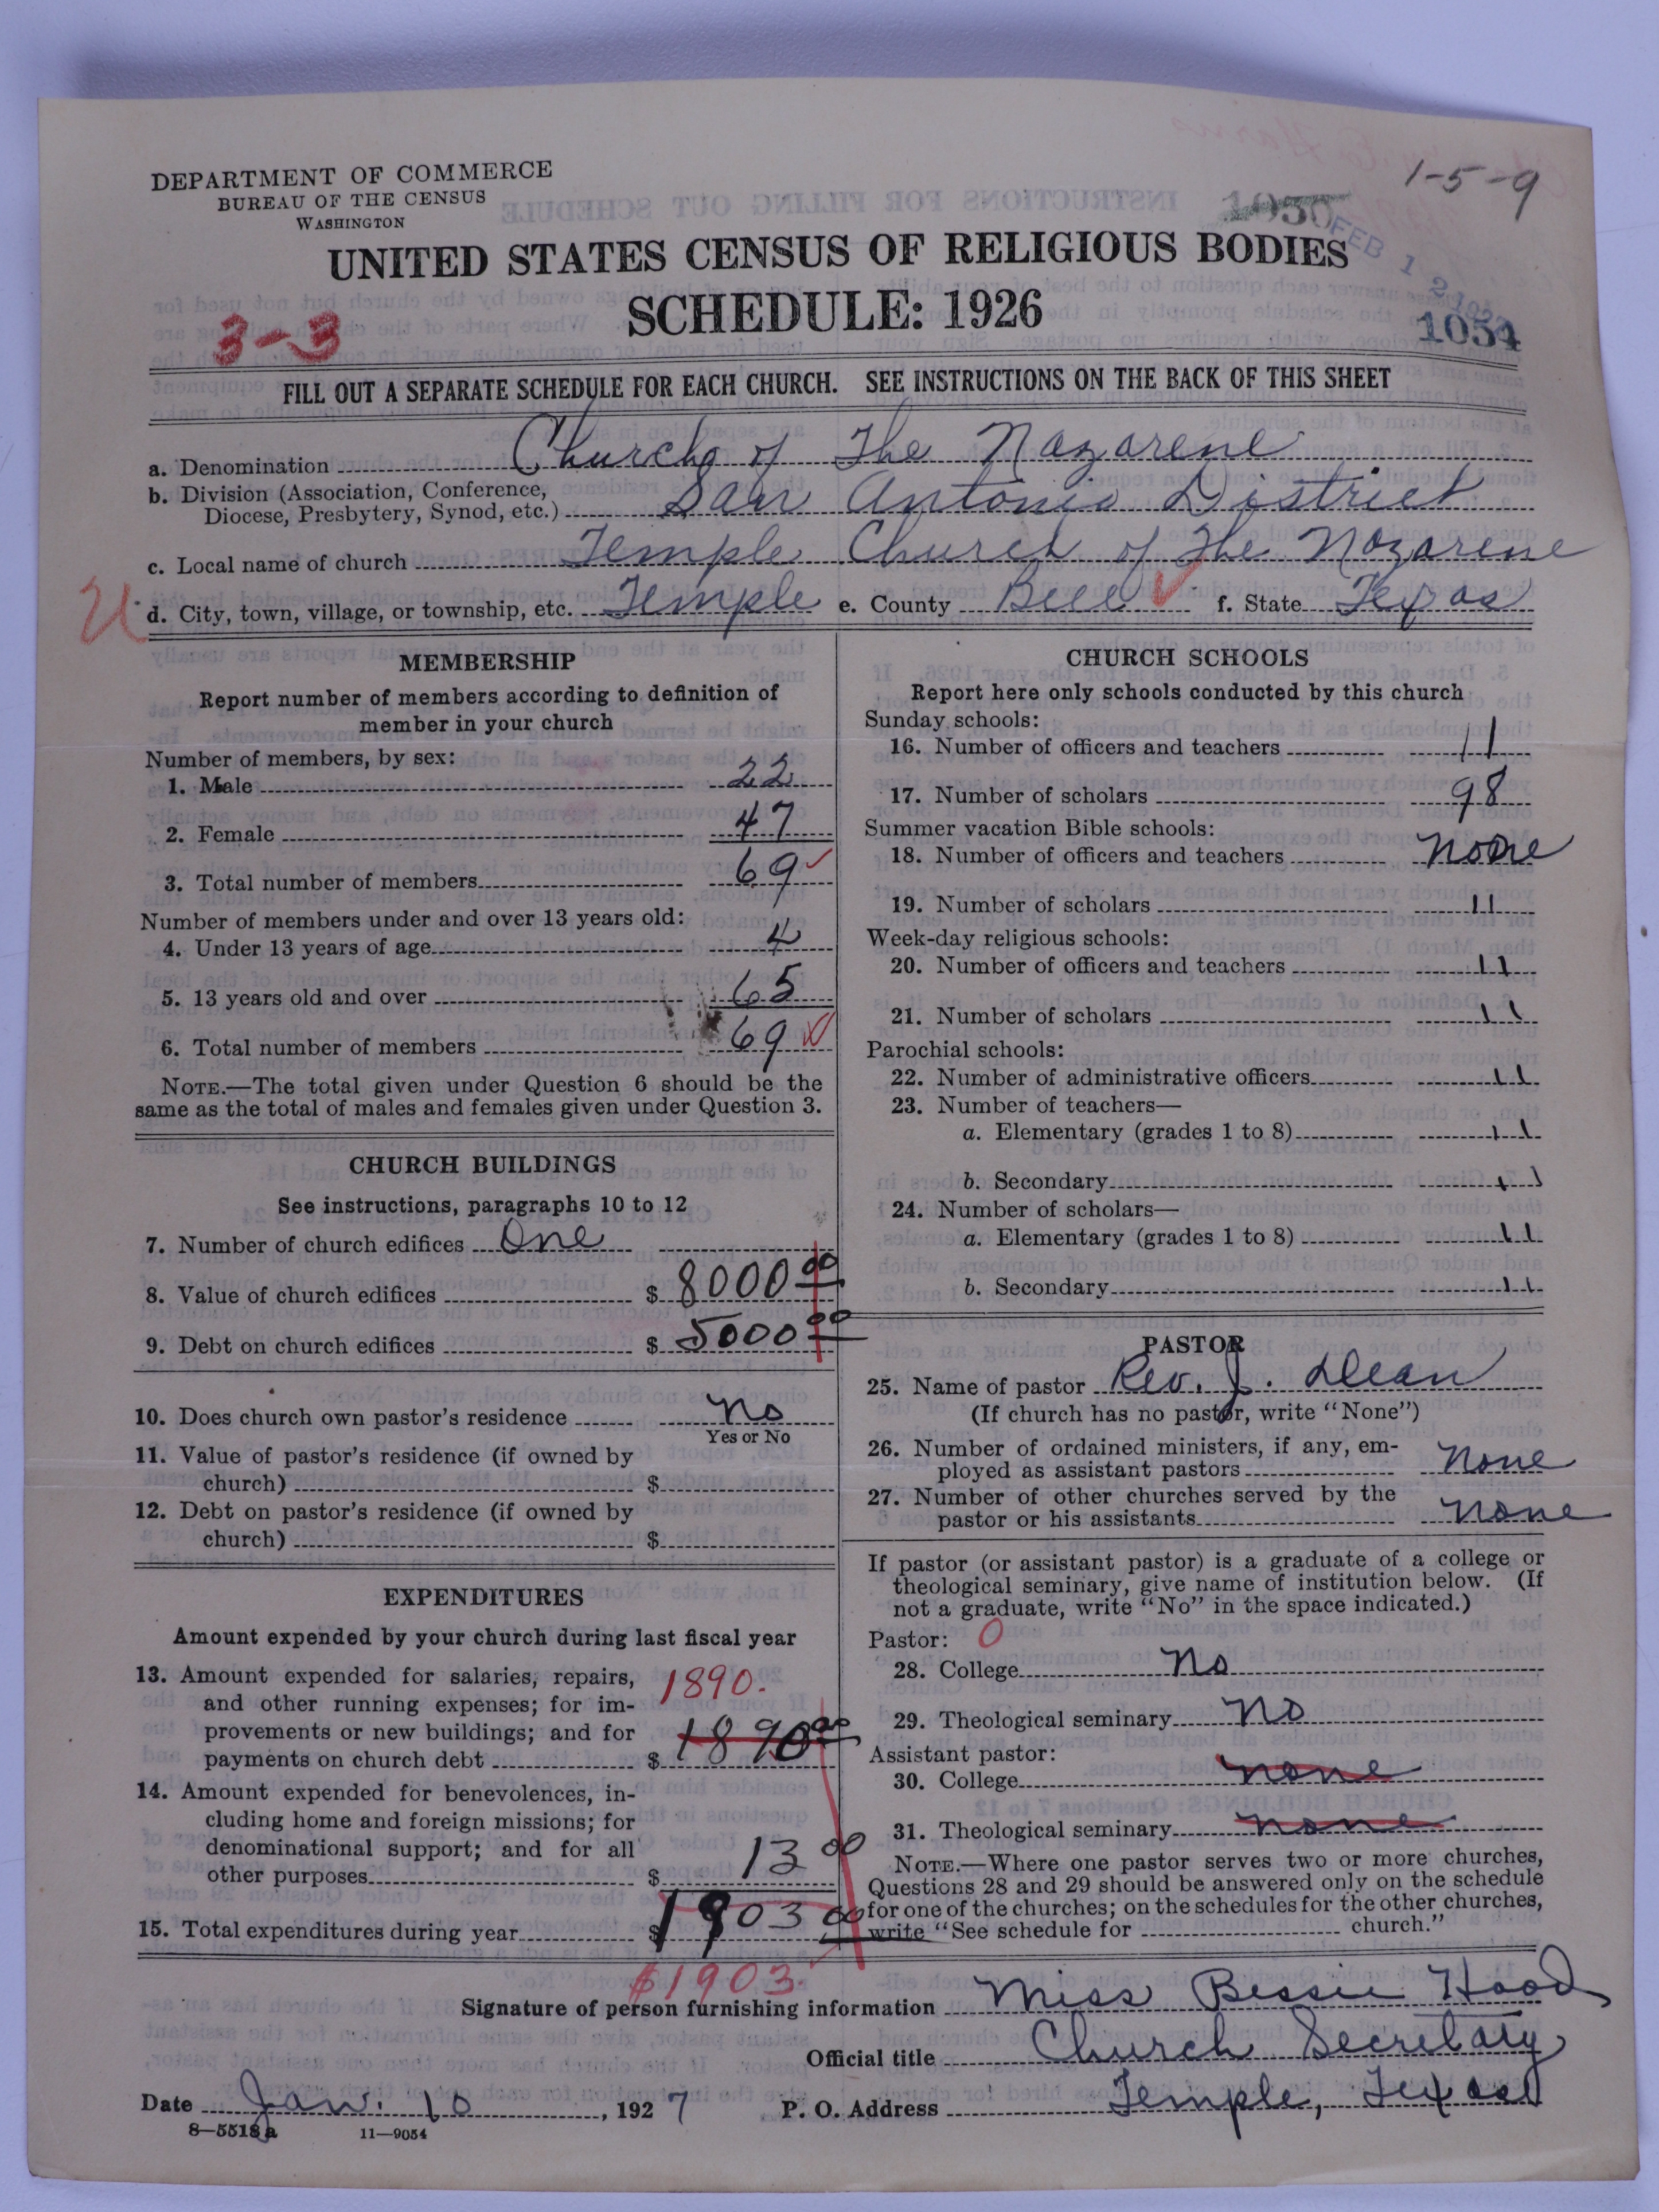 DEPARTMENT OF COMMERCE
BUREAU OF THE CENSUS
WASHINGTON
1-5-9
1050
FEB 12 1927
1054
UNITED STATES CENSUS OF RELIGIOUS BODIES
SCHEDULE: 1926
3-3
FILL OUT A SEPARATE SCHEDULE FOR EACH CHURCH. SEE INSTRUCTIONS ON THE BACK OF THIS SHEET
a. Denomination Church of The Nazarene
b. Division (Association, Conference,
Diocese, Presbytery, Synod, etc.) San Antonio District
c. Local name of church Temple Church of The Nazarene
d. City, town, village, or township, etc. Temple e. County Bell f. State Texas
MEMBERSHIP
Report number of members according to definition of
member in your church
Number of members, by sex:
1. Male 22
2. Female 47
3. Total number of members 69
Number of members under and over 13 years old:
4. Under 13 years of age 4
5. 13 years old and over 65
6. Total number of members 69
NOTE.—The total given under Question 6 should be the
same as the total of males and females given under Question 3.
CHURCH BUILDINGS
See instructions, paragraphs 10 to 12
7. Number of church edifices One
8. Value of church edifices $ 8000 00
9. Debt on church edifices $ 5000 00
10. Does church own pastor's residence No
Yes or No
11. Value of pastor's residence (if owned by
church) $
12. Debt on pastor's residence (if owned by
church) $
EXPENDITURES
Amount expended by your church during last fiscal year
13. Amount expended for salaries, repairs, 1890.
and other running expenses; for im-
provements or new buildings; and for
payments on church debt $ 1890 00
14. Amount expended for benevolences, in-
cluding home and foreign missions; for
denominational support; and for all
other purposes $ 13 00
15. Total expenditures during year $ 1903 00
$1903.
CHURCH SCHOOLS
Report here only schools conducted by this church
Sunday schools:
16. Number of officers and teachers 11
17. Number of scholars 98
Summer vacation Bible schools:
18. Number of officers and teachers None
19. Number of scholars 11
Week-day religious schools:
20. Number of officers and teachers 11
21. Number of scholars 11
Parochial schools:
22. Number of administrative officers 11
23. Number of teachers—
a. Elementary (grades 1 to 8) 11
b. Secondary 11
24. Number of scholars—
a. Elementary (grades 1 to 8) 11
b. Secondary 11
PASTOR
25. Name of pastor Rev. J. Dean
(If church has no pastor, write "None")
26. Number of ordained ministers, if any, em-
ployed as assistant pastors None
27. Number of other churches served by the
pastor or his assistants None
If pastor (or assistant pastor) is a graduate of a college or
theological seminary, give name of institution below. (If
not a graduate, write "No" in the space indicated.)
Pastor: 0
28. College No
29. Theological seminary No
Assistant pastor:
30. College none
31. Theological seminary none
NOTE.—Where one pastor serves two or more churches,
Questions 28 and 29 should be answered only on the schedule
for one of the churches; on the schedules for the other churches,
write "See schedule for church."
Signature of person furnishing information Miss Bessie Hood
Official title Church Secretary
Date Jan. 10, 1927 P. O. Address Temple, Texas
8—5518a 11—9054